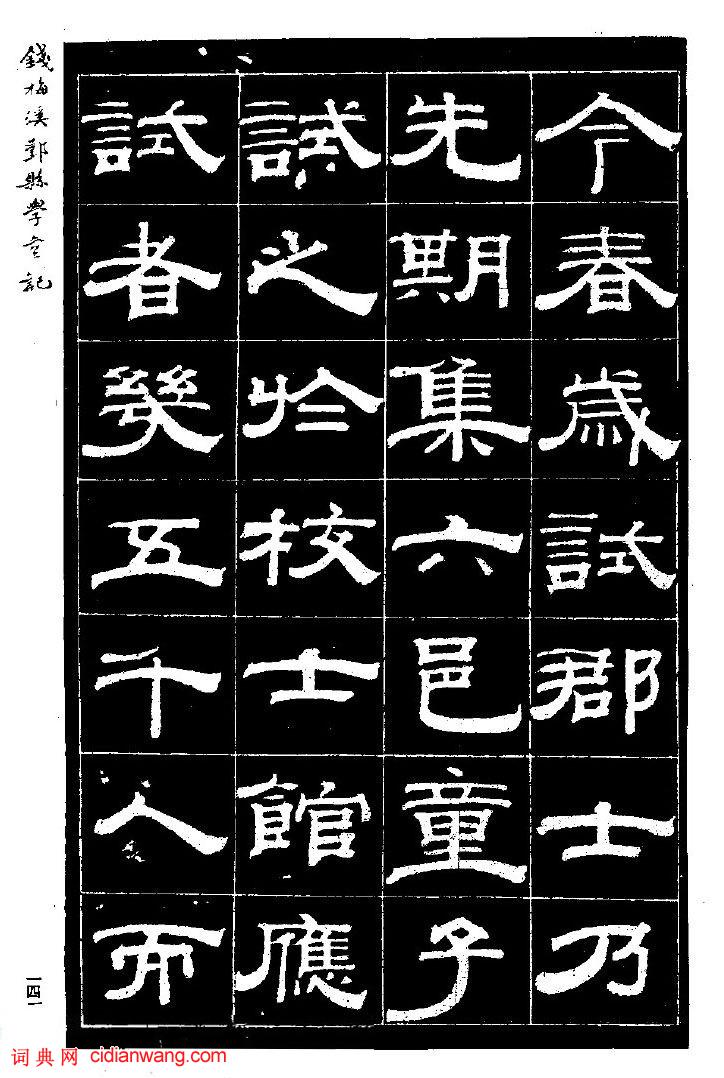 今春歲試郡士乃
先期集六邑童子
試之於校士館應
試者幾五千人而
錢梅溪鄞縣學記
一四一
词典网 cidianwang.com